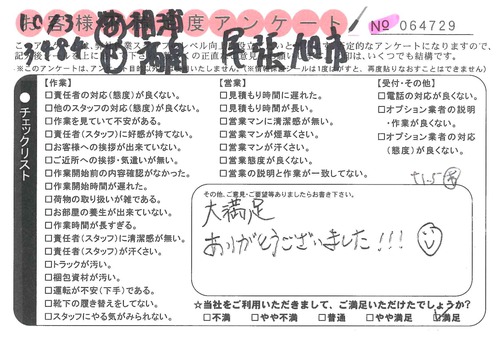 お客様満足度アンケート
No 064729
尾張旭市
チェックリスト
【作業】
□責任者の対応(態度)が良くない。
□他のスタッフの対応(態度)が良くない。
□作業を見ていて不安がある。
□責任者(スタッフ)に好感が持てない。
□お客様への挨拶が出来ていない。
□ご近所への挨拶・気遣いが無い。
□作業開始前の内容確認がなかった。
□作業開始時間が遅れた。
□荷物の取り扱いが雑である。
□お部屋の養生が出来ていない。
□作業時間が長すぎる。
□責任者(スタッフ)に清潔感が無い。
□責任者(スタッフ)が汗くさい。
□トラックが汚い。
□梱包資材が汚い。
□運転が不安(下手)である。
□靴下の履き替えをしてない。
□スタッフにやる気がみられない。
【営業】
□見積もり時間に遅れた。
□見積もり時間が長い。
□営業マンに清潔感が無い。
□営業マンが煙草くさい。
□営業マンが汗くさい。
□営業態度が良くない。
□営業の説明と作業が一致してない。
【受付・その他】
□電話の対応が良くない。
□オプション業者の説明
・作業が良くない。
□オプション業者の対応
(態度)が良くない。
その他、ご意見・ご要望等ありましたらお書き下さい。
大満足
ありがとうございました!!!
☆当社をご利用いただきまして、ご満足いただけたでしょうか?
□不満 □やや不満 □普通 □やや満足 □満足